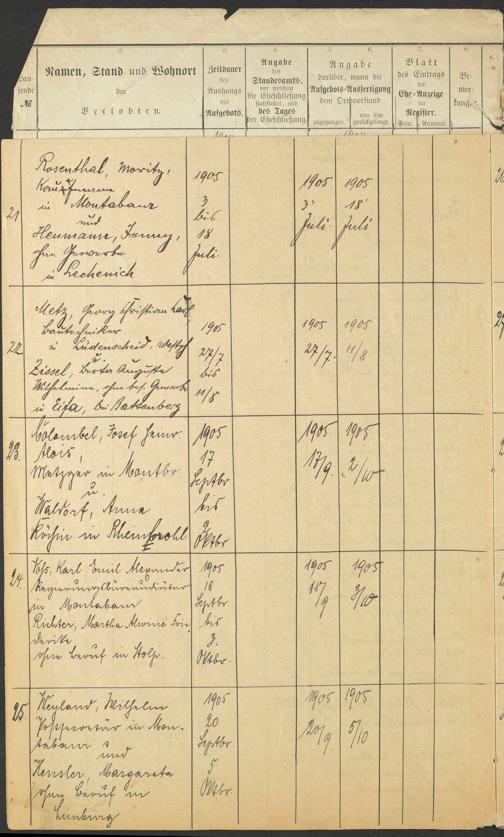 2.
3.
4.
5.
6.
7.
8.
Lau-
fende
№
Namen, Stand und Wohnort
der
Verlobten.
Zeitdauer
des
Aushangs
des
Aufgebots.
Angabe
des
Standesamts,
vor welchem
die Eheschließung
stattfindet, und
des Tages
der Eheschließung.
Angabe
darüber, wann die
Aufgebots-Ausfertigung
dem Ortsvorstand
zugegangen.
von ihm
zurückgelangt.
Blatt
des Eintrags
der
Ehe-Anzeige
im
Register.
Seite. Nummer.
Be-
mer-
kung.
21
Rosenthal, Moritz,
Kaufmann
in Montabaur
und
Heumann, Jenny,
ohne Gewerbe
in Lechenich
1905
3
bis
18
Juli.
1905
3'
Juli.
1905
18'
Juli
22.
Metz, Georg Christian Karl,
Bautechniker
z Lüdenscheid, Westf
u.
Zissel, Berta Auguste
Wilhelmine, ohne bes. Gewerbe
in Eifa, bei Battenberg
1905
27/7
bis
11/8
1905
27/7.
1905
11/8
23.
Colombel, Josef Heinr.
Alois,
Metzger in Montbr
u.
Waldorf, Anna
Köchin in Rheinbrohl
1905
17
Septbr
bis
2
Oktbr
1905
17/9.
1905
2/10
24.
Karl Emil Alexander
in Montabaur
Richter, Martha Alwine Frie-
derike
ohne Beruf in Stolp.
1905
18
Septbr.
bis
3.
Oktbr.
1905
18/9
1905
3/10
25
Weyland, Wilhelm
Postsecretär in Mon-
tabaur
und
Hensler, Margareta
ohne Beruf in
Limburg
1905
20
Septbr
5
Oktbr.
1905
20/9.
1905
5/10